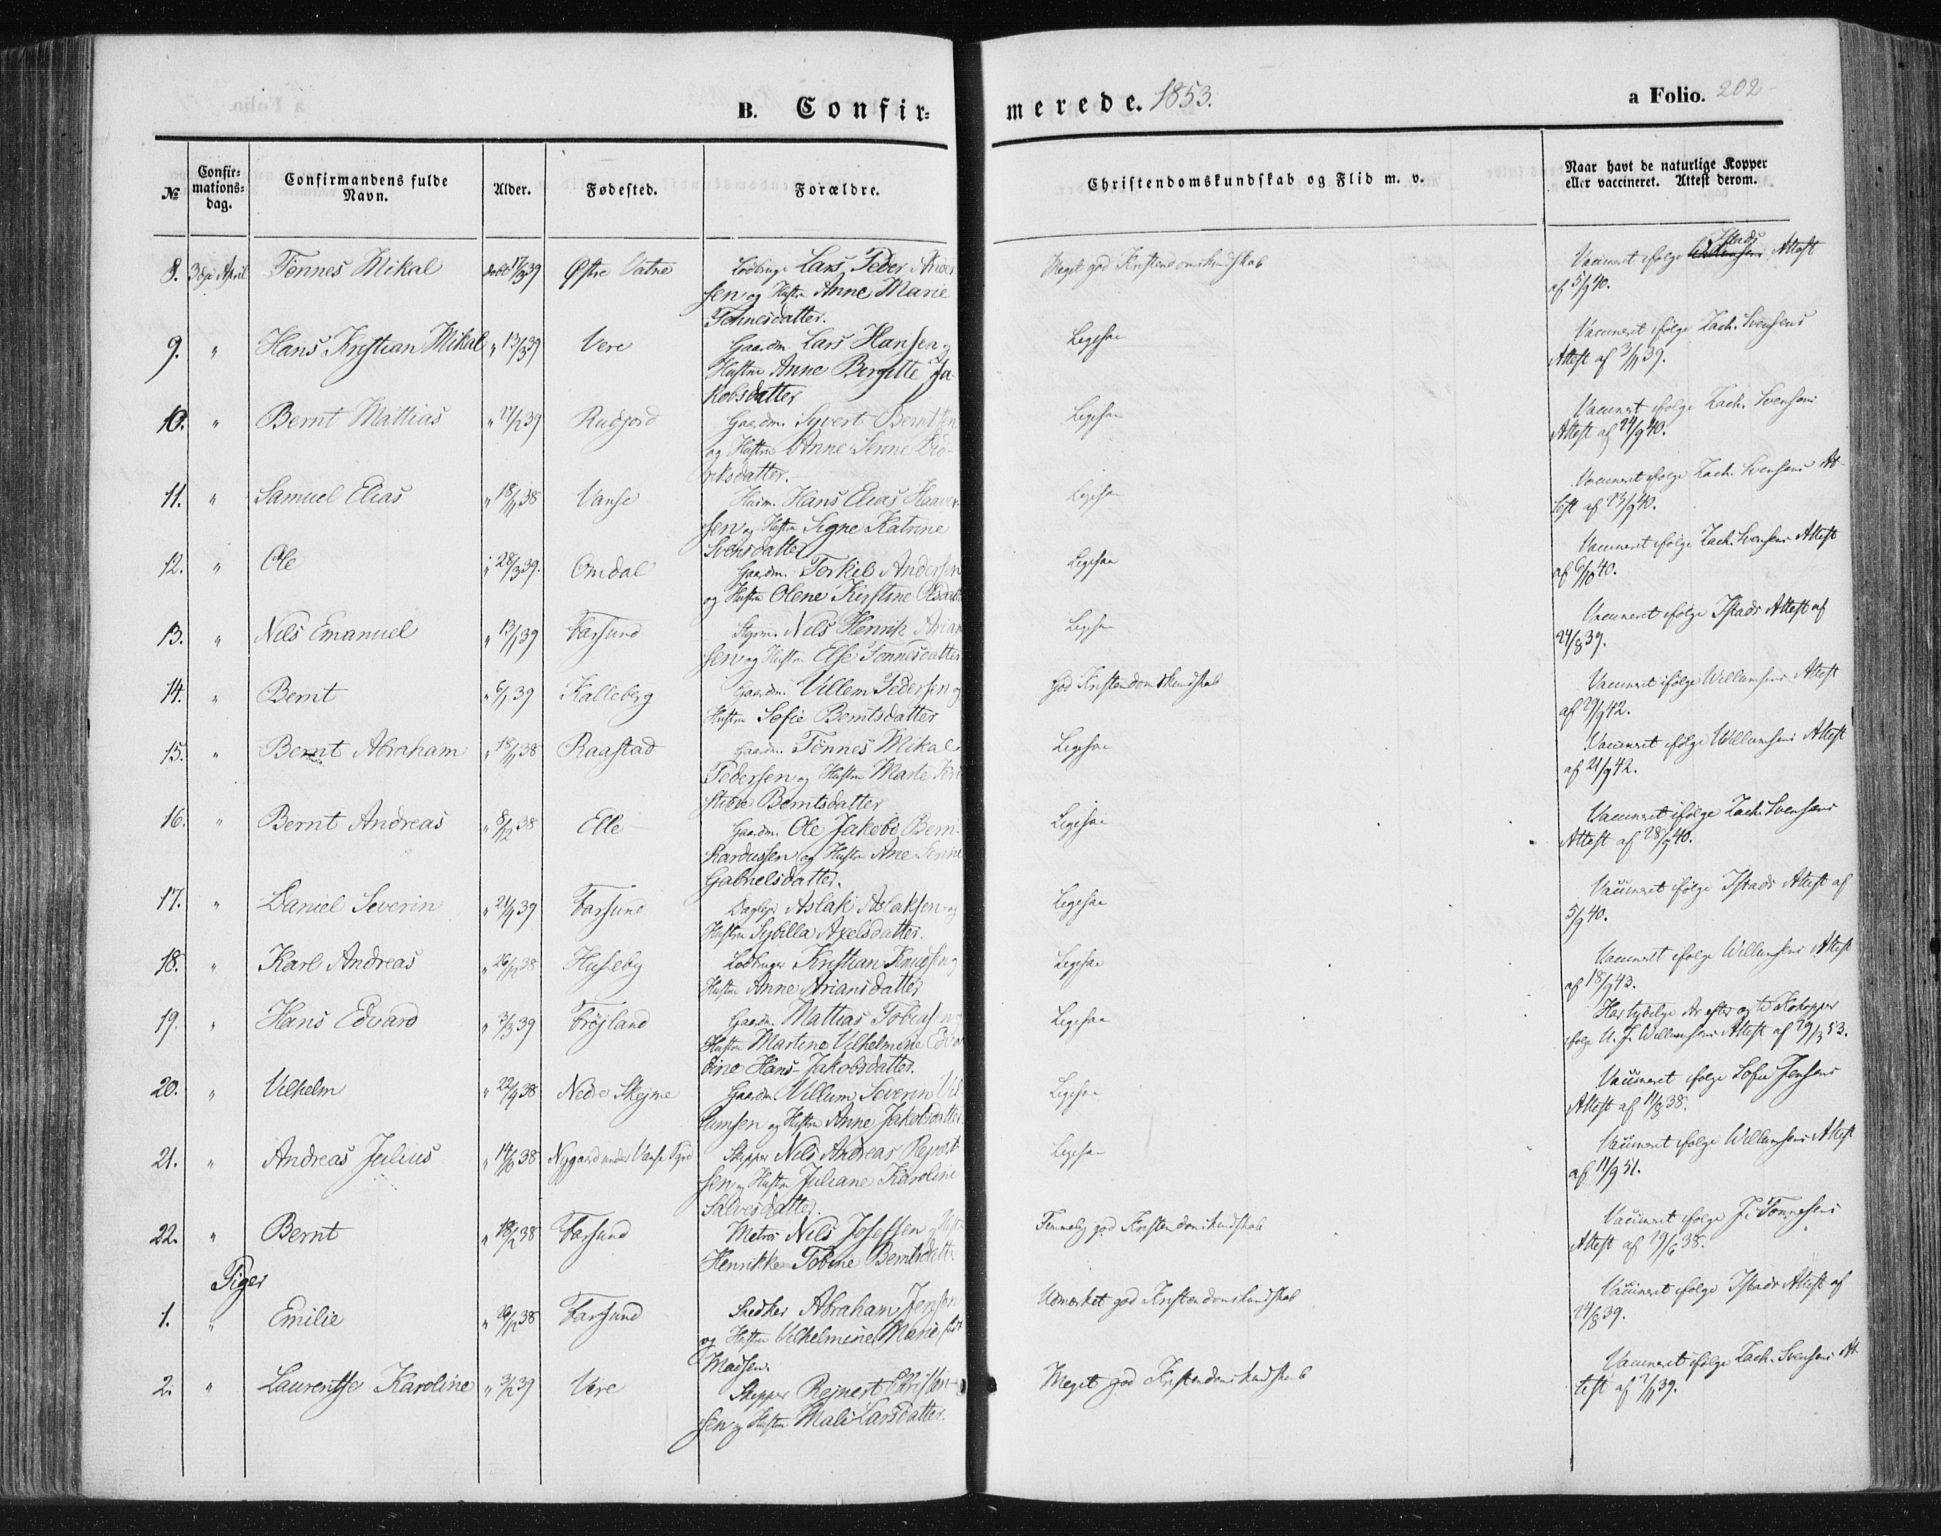 B. Confir=
merede. 1853.
a Folio. 202
№
Confir=
mations=
dag.
Confirmandens fulde
Navn.
Alder.
Fødested.
Forældre.
Christendomskundskab og Flid m. v.
Naar havt de naturlige Kopper
eller vaccineret. Attest derom.
8. 3die April Tønnes Mikal 39 Østre Vatne Lars Peder Ander
sen og Hustru Anne Marie
Tønnesdatter.
Meget god Kristendomskundskab
Vaccineret ifølge Istads Attest
af 5/9 40.
9. " Hans Kristian Mikal " 13/3 39 Vere Gaardm. Lars Hansen og
Hustru Anne Bergitte Ja-
kobsdatter
Ligesaa
Vaccineret ifølge Zach. Svensens
Attest af 3/11 39.
10. " Bernt Mattias " 39 Rudjord Gaardm. Syvert Berntsen
og Hustru Anne Senne Did-
riksdatter.
Ligesaa
Vaccineret ifølge Zach. Svensens
Attest af 24/9 40.
11. " Samuel Elias " 18/11 38 Vanse Huusm. Hans Elias Haaver
sen og Hustru Signe Katrine
Svensdatter
Ligesaa
Vaccineret ifølge Zach. Svensens At-
test af 23/9 40.
12. " Ole " 28/3 39. Omdal Gaardm. Torkild Andersen
og Hustru Olene Kirstine Olsdatter
Ligesaa
Vaccineret ifølge Zach. Svensens Attest
af 6/10 40.
13. " Nils Emanuel " 13/1 39 Farsund Styrm. Nils Henrik Arian
sen og Hustru Else Tønnesdatter
Ligesaa
Vaccineret ifølge Istads Attest af
24/8 39.
14. " Bernt " 6/1 39 Kalleberg Gaardm. Villem Pedersen og
Hustru Sofie Berntsdatter
God Kristendomskundskab
Vaccineret ifølge Willumsens Attest
af 42.
15. " Bernt Abraham " 18/11 38 Raastad Gaardm. Tønnes Mikal
Pedersen og Hustru Marte
Berntsdatter
Ligesaa
Vaccineret ifølge Willumsens Attest
af 21/9 42.
16. " Bernt Andreas " 8/12 38 Elle Gaardm. Ole Jakob Bern-
hardussen og Hustru Ane Senne
Gabrielsdatter.
Ligesaa
Vaccineret ifølge Zach. Svensens
Attest af 28/9 40.
17. " Daniel Severin " 21/1 39 Farsund Aslak Aslaksen og
Hustru Sybilla Axelsdatter.
Ligesaa
Vaccineret ifølge Istads Attest af
5/9 40.
18. " Karl Andreas " 26/12 38 Huseby Kristian Knudsen og
Hustru Anne Ariansdatter
Ligesaa
Vaccineret ifølge Willumsens Attest
af 18/9 43.
19. " Hans Edvard " 3/3 39 Frøjland Gaardm. Mattias Tobiassen og
Hustru Martine Vilhelmine Edvar
dine Hans-Jakobsdatter.
Ligesaa
Har tydelige Ar efter Kokopper
ifølge Willumsens Attest af 53.
20. " Vilhelm " 22/9 38 Nedre Skejme Gaardm. Willum Severin Vil
lumsen og Hustru Anne Jakobsdatter
Ligesaa
Vaccineret ifølge Sofie Jensens
Attest af 11/8 38.
21. " Andreas Julius " 14/8 38 Nygaard under Vanse Skipper Nils Andreas Rejnert
sen og Hustru Juliane Karoline
Salvesdatter.
Ligesaa
Vaccineret ifølge Willumsens Attest
af 11/9 51.
22. " Bernt " 38 Farsund Nils Josefsen og Hustru
Henrikke Tobine Berntsdatter
Temmelig god Kristendomskundskab
Vaccineret ifølge J. Tønnesens
Attest af 38.
Piger
1. " Emilie " 38 Farsund Snedker Abraham Jensen
og Hustru Vilhelmine Marie født
Madsen.
Udmærket god Kristendomskundskab
Vaccineret ifølge Istads Attest af
24/8 39.
2. " Laurentse Karoline " 3/2 39 Vere Skipper Rejnert Christen-
sen og Hustru Mali Larsdatter.
Meget god Kristendomskundskab
Vaccineret ifølge Zach. Svensens At
test af 39.